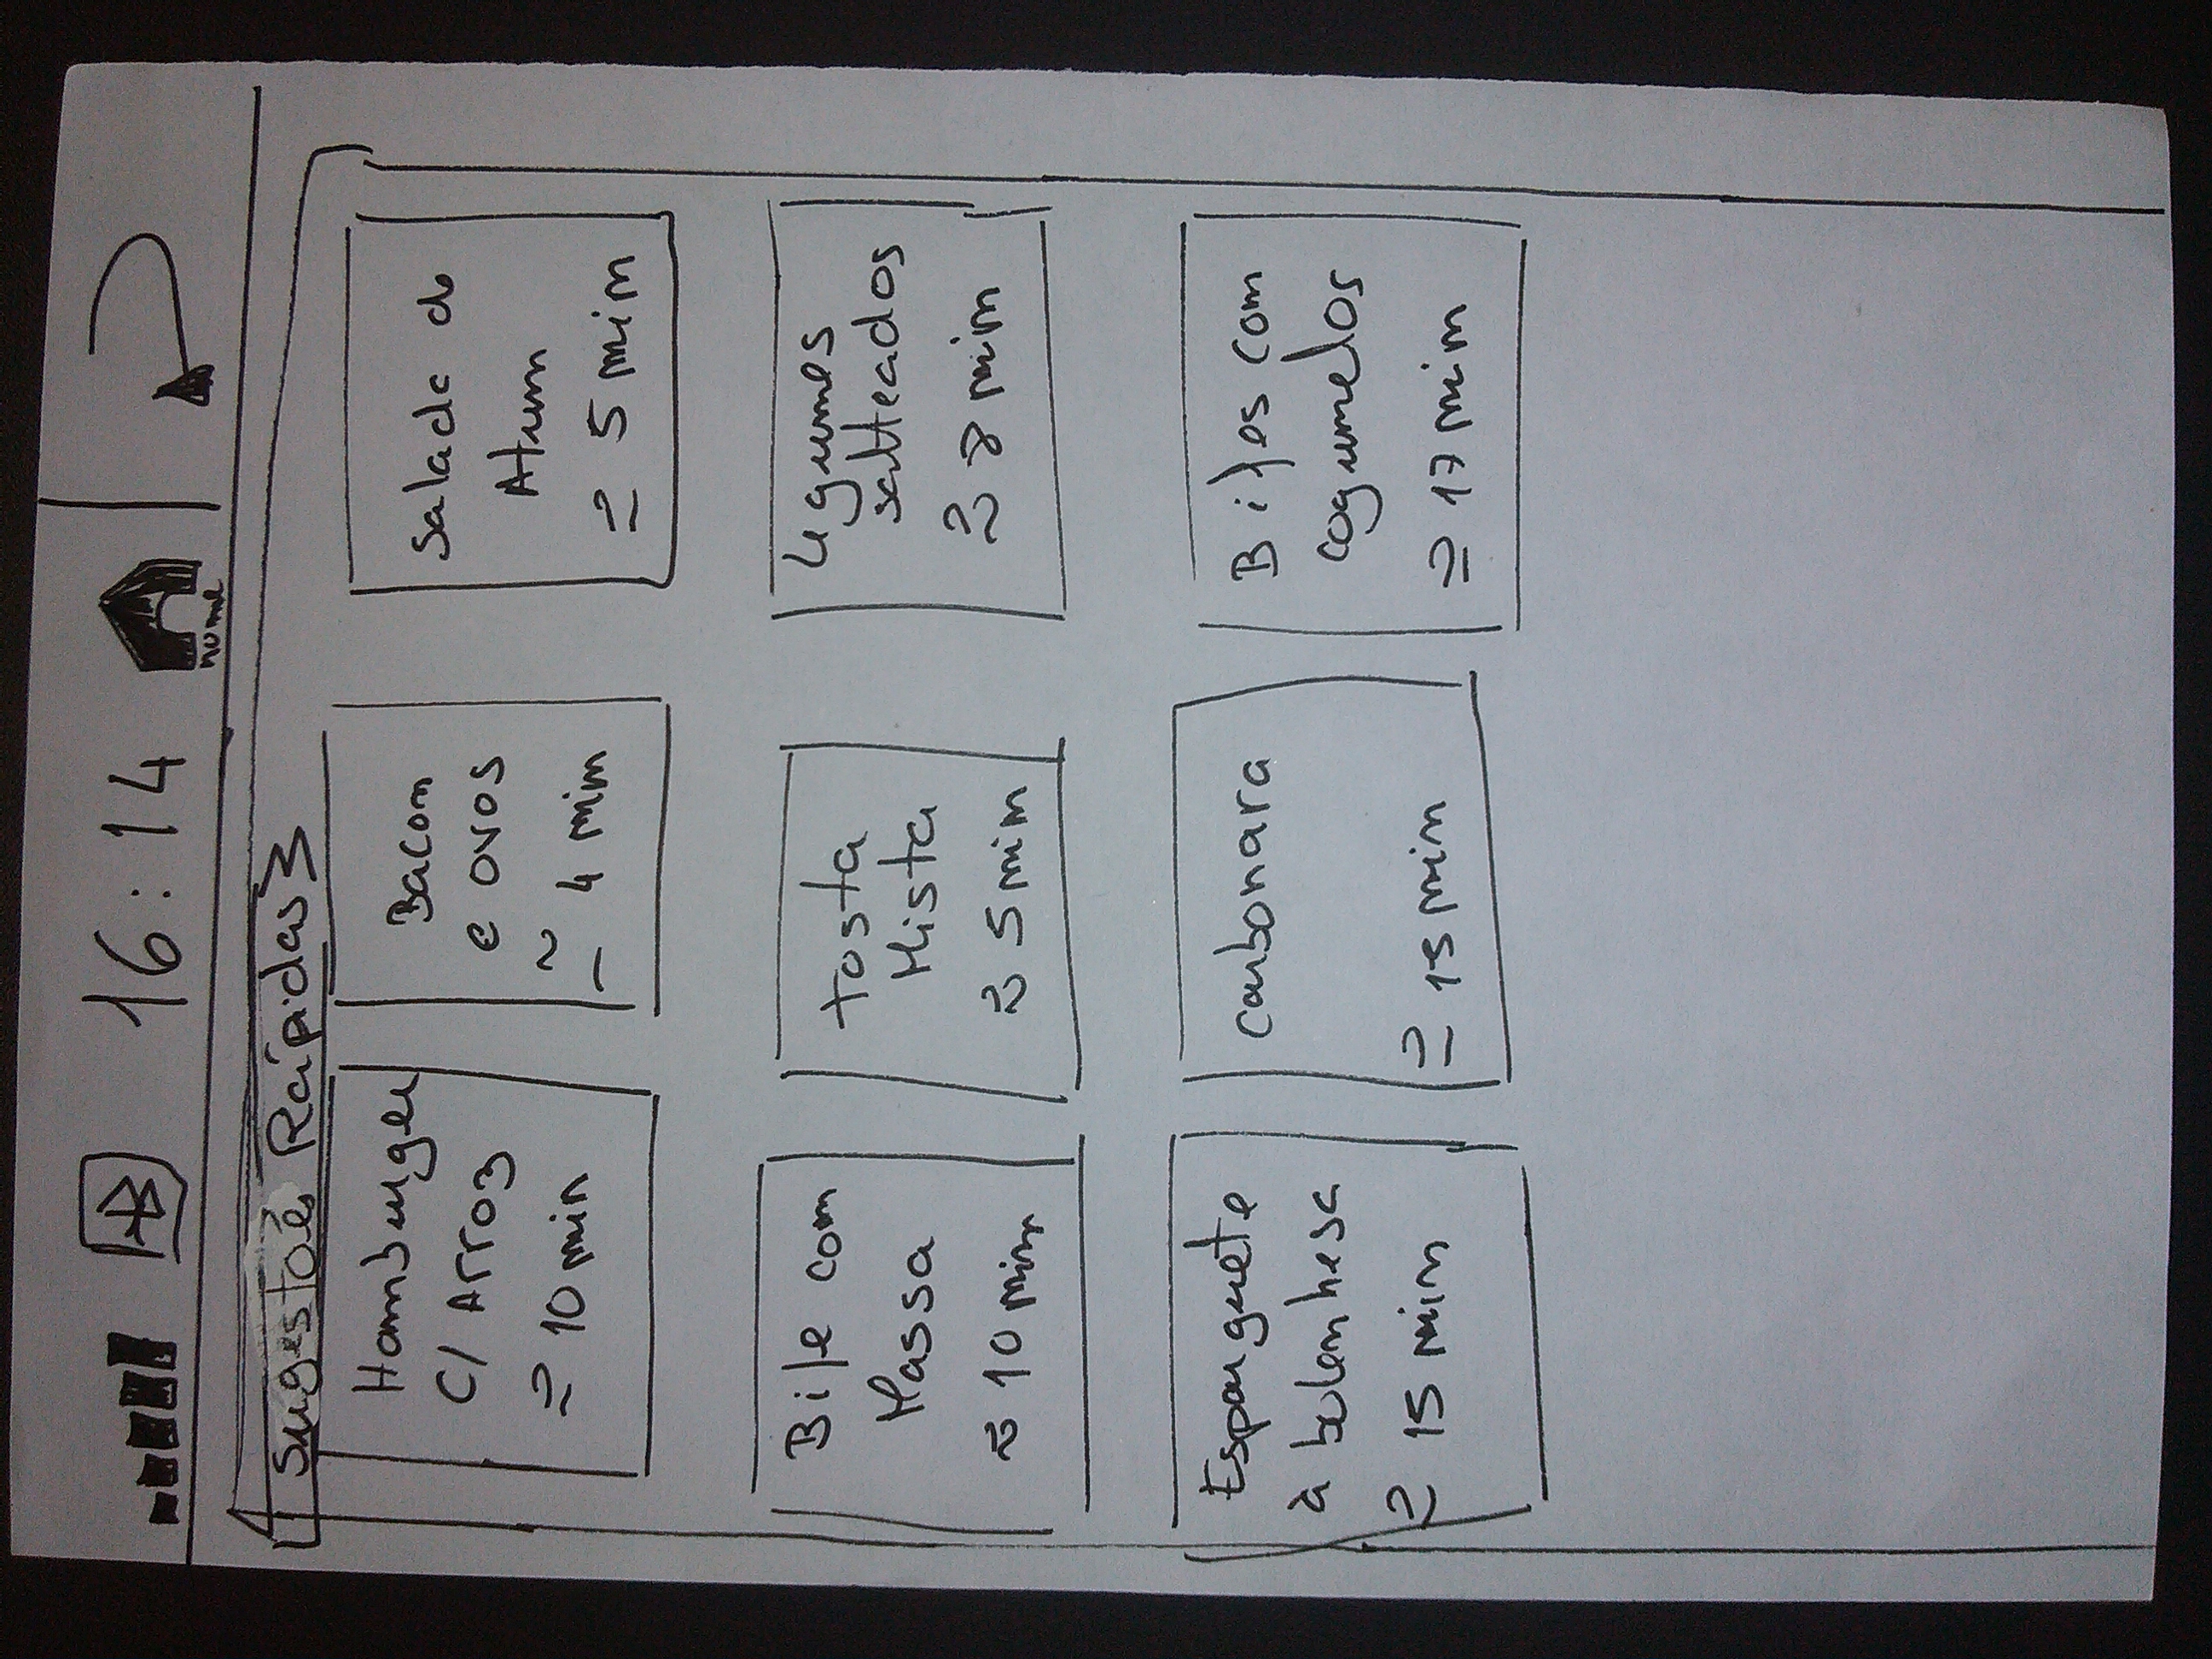 16:14
Home
Sugestões Rápidas
Hamburger
C/ Arroz
≃ 10 min
Bacom
e ovos
≃ 4 min
Salada de
Atum
≃ 5 min
Bife com
Massa
≈ 10 min
tosta
Mista
≈ 5 min
Legumes
salteados
≈ min
Espaguete
à bolonhesa
≃ 15 min
carbonara
≃ 15 min
Bifes com
cogumelos
≃ 17 min